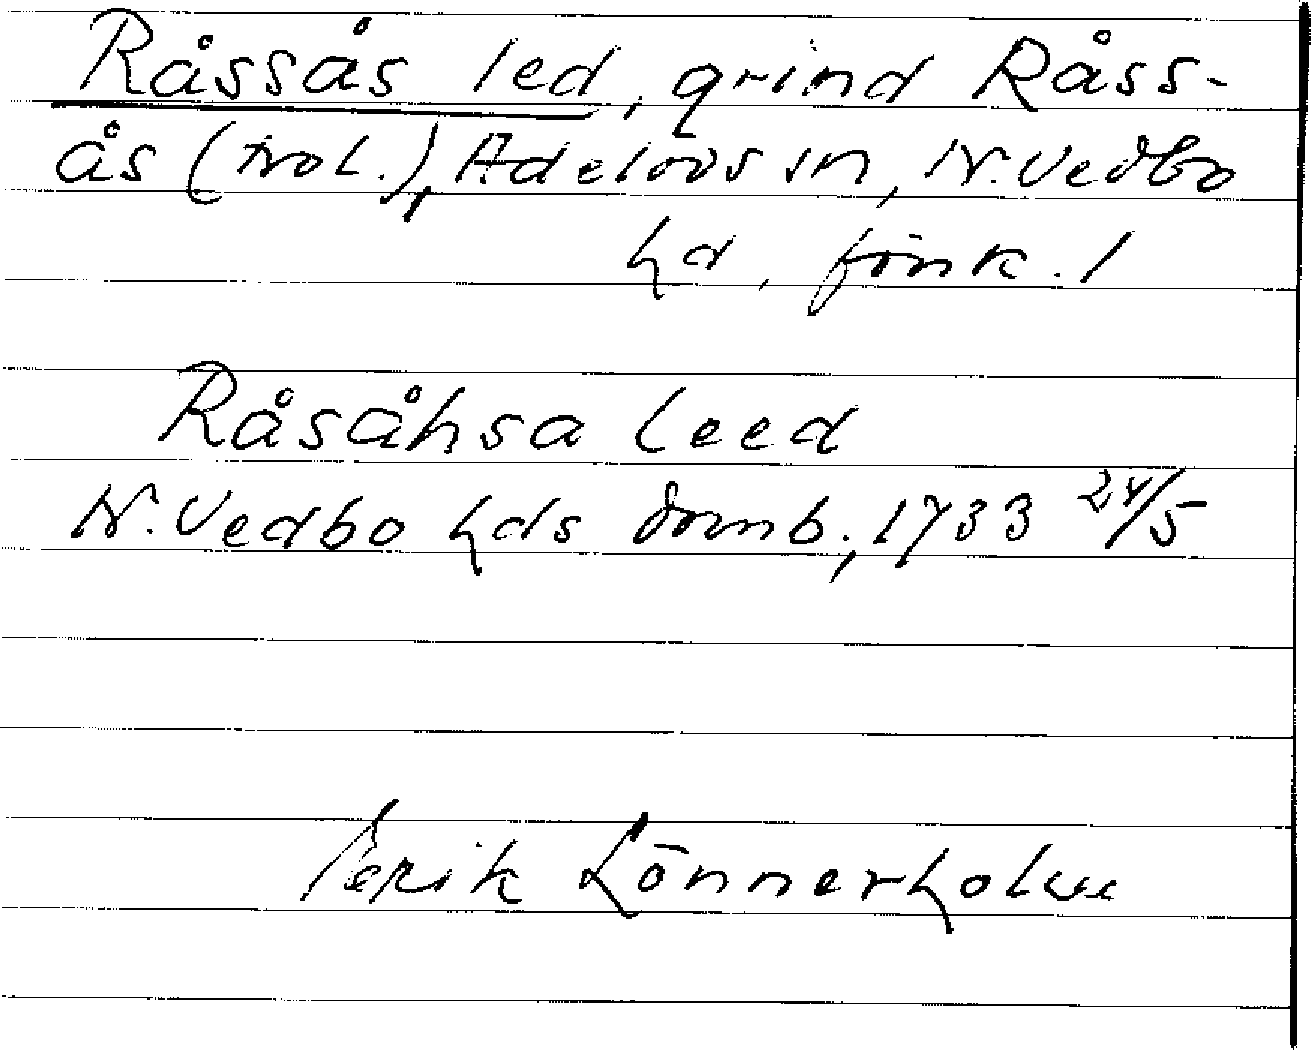 Råssås led, grind Råss-
ås (trol.), Adelövs sn, N. Vedbo
hd, Jönk. l
Råsåhsa Leed
N. Vedbo hds domb., 1733 24/5
Erik Lönnerholm